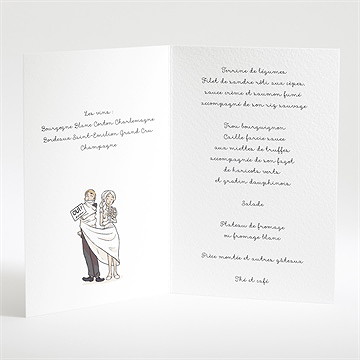 Les vins :
Bourgogne Blanc Corton Charlemagne
Bordeaux Saint-Emilion Grand Cru
Champagne
OUI!
Terrine de légumes
Filet de sandre rôti aux cèpes,
sauce crème et saumon fumé
accompagné de son riz sauvage
Trou bourguignon
Caille farcie sauce
aux miettes de truffes
accompagnée de son fagot
de haricots verts
et gratin dauphinois
Salade
Plateau de fromage
ou fromage blanc
Pièce montée et autres gâteaux
Thé et café